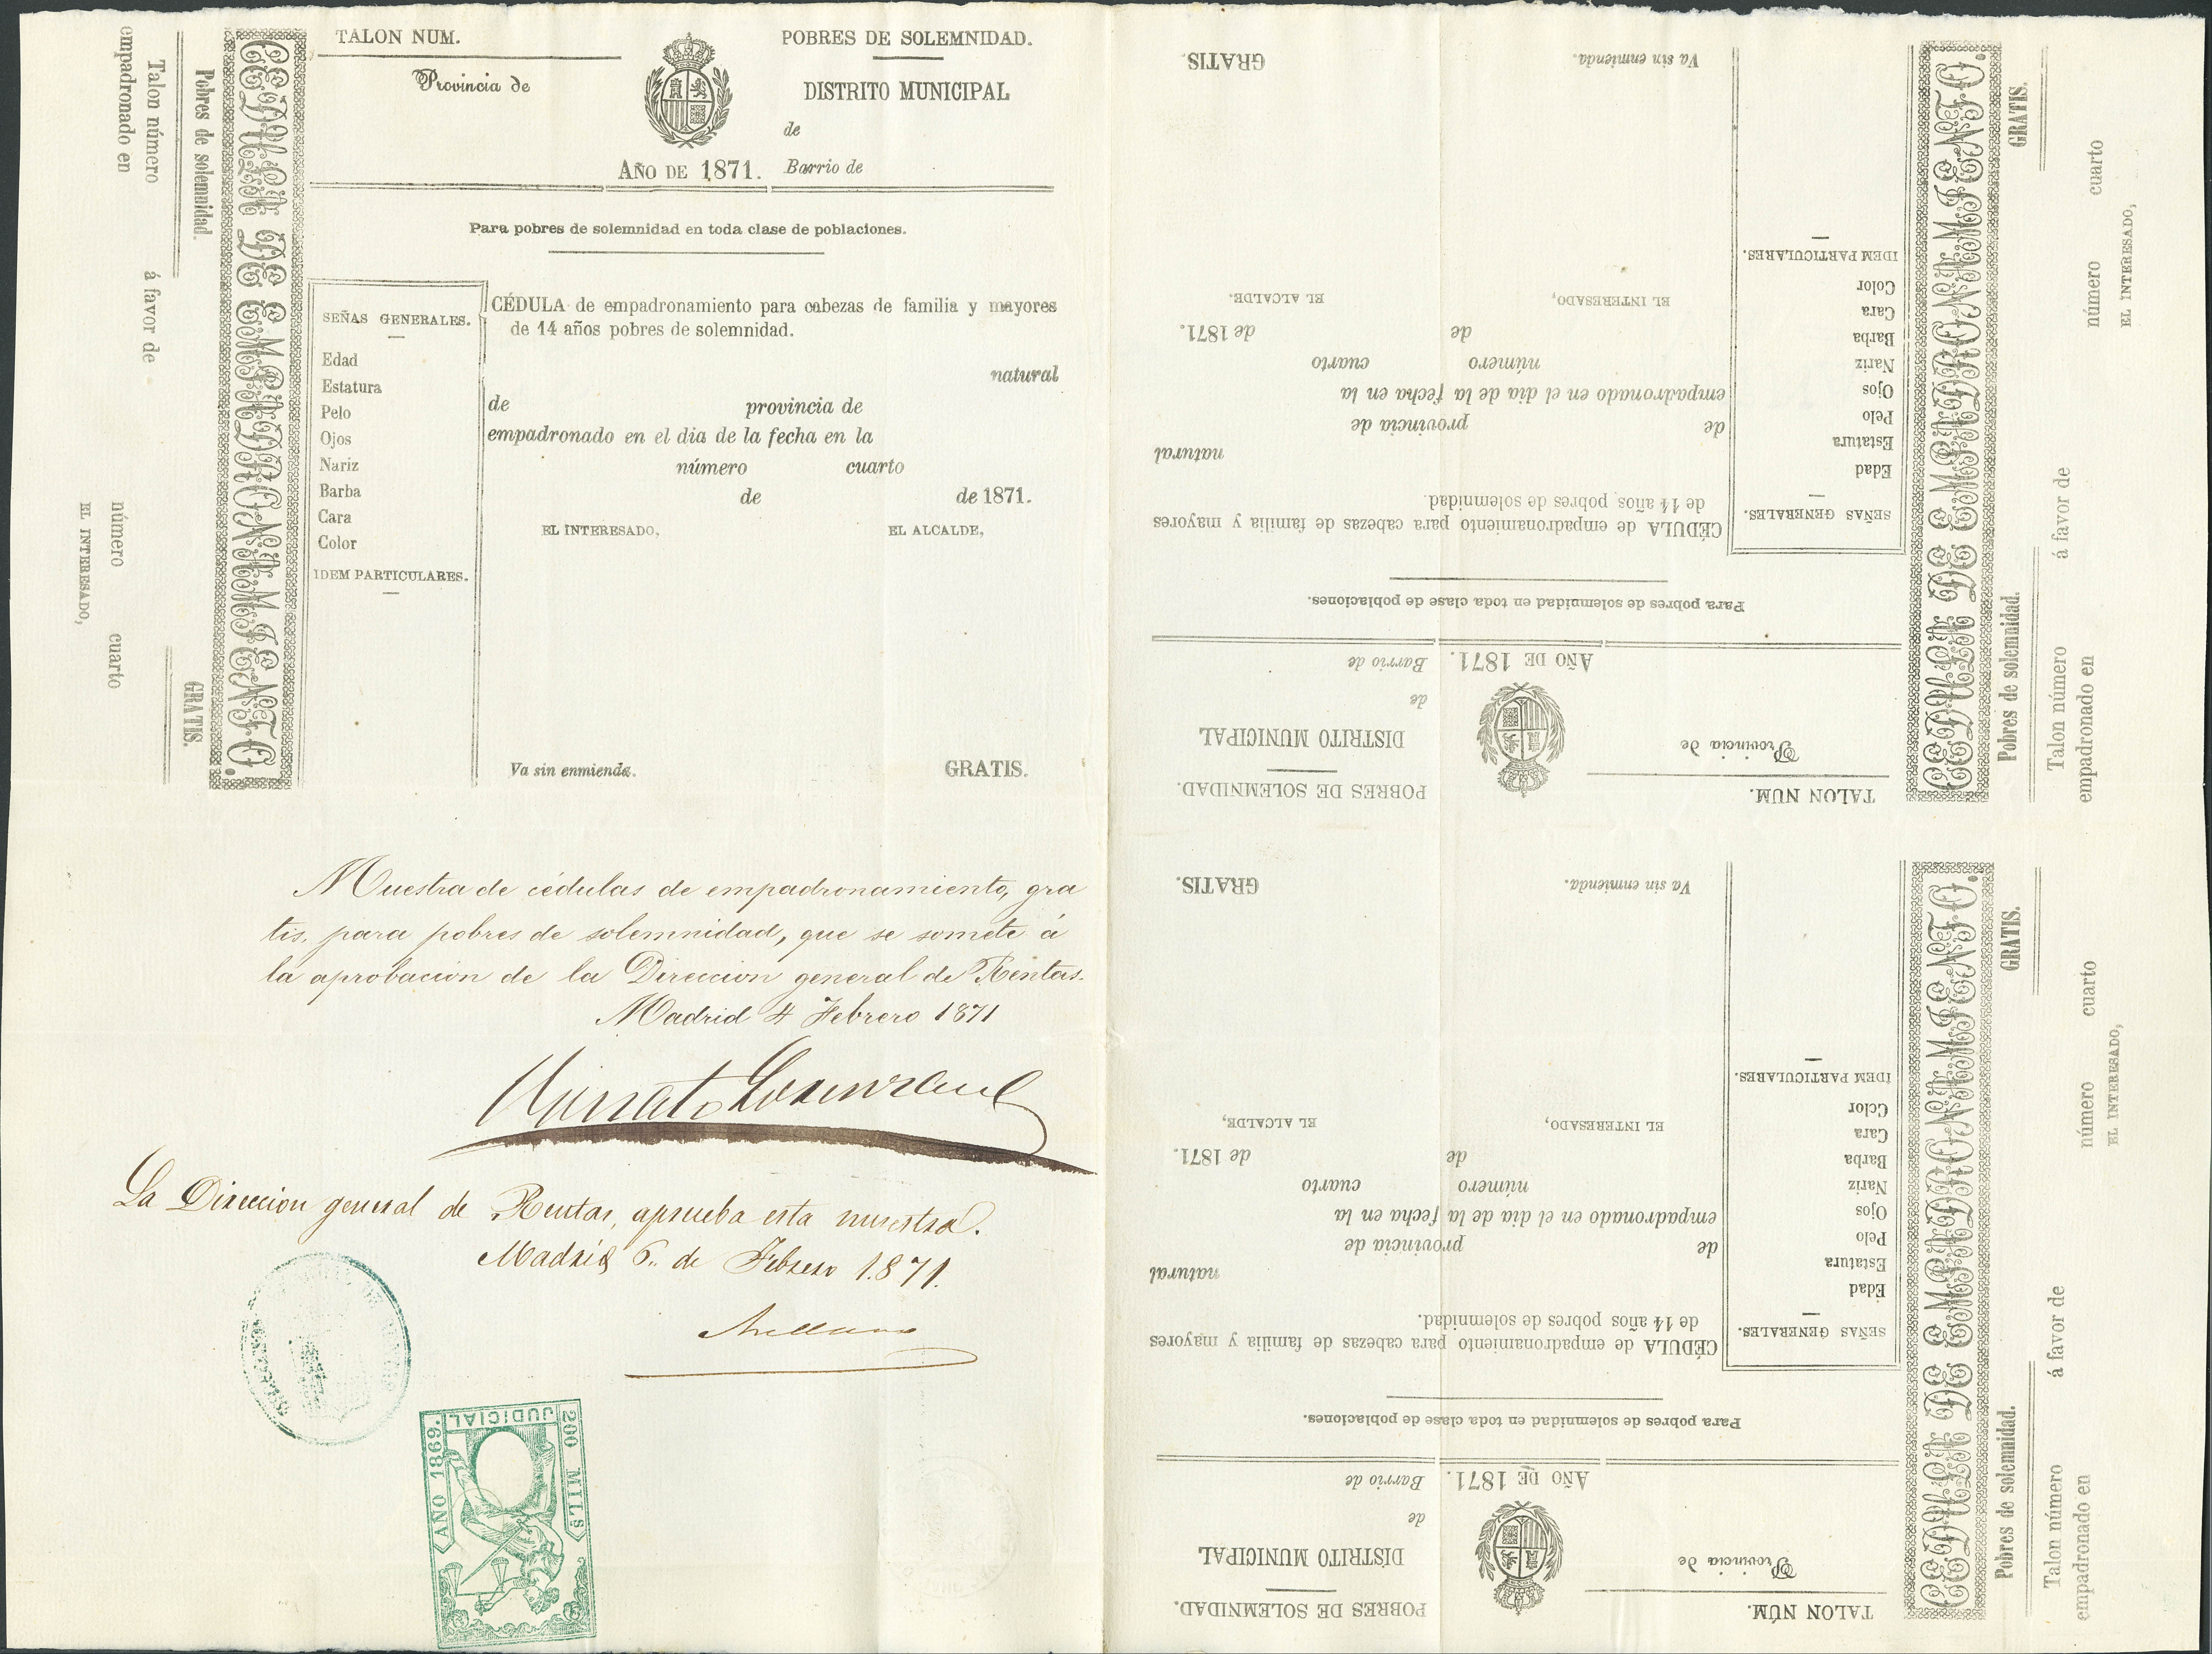 TALON NUM.
Provincia de
AÑO DE 1871.
POBRES DE SOLEMNIDAD.
DISTRITO MUNICIPAL
de
Barrio de
Para pobres de solemnidad en toda clase de poblaciones.
SEÑAS GENERALES.
Edad
Estatura
Pelo
Ojos
Nariz
Barba
Cara
Color
IDEM PARTICULARES.
CÉDULA de empadronamiento para cabezas de familia y mayores
de 14 años pobres de solemnidad.
natural
de provincia de
empadronado en el dia de la fecha en la
número cuarto
de de 1871.
EL INTERESADO, EL ALCALDE,
Va sin enmienda. GRATIS.
CÉDULA DE EMPADRONAMIENTO.
Pobres de solemnidad. GRATIS.
Talon número á favor de
empadronado en número cuarto
EL INTERESADO,
Muestra de cédulas de empadronamiento, gra
tis, para pobres de solemnidad, que se somete á
la aprobacion de la Direccion general de Rentas.
Madrid 4 Febrero 1871
La Direccion general de Rentas, aprueba esta muestra.
Madrid 6 de Febrero 1.871.
Arellano
AÑO 1869.
JUDICIAL
200 MILS
TALON NUM.
Provincia de
AÑO DE 1871.
POBRES DE SOLEMNIDAD.
DISTRITO MUNICIPAL
de
Barrio de
Para pobres de solemnidad en toda clase de poblaciones.
SEÑAS GENERALES.
Edad
Estatura
Pelo
Ojos
Nariz
Barba
Cara
Color
IDEM PARTICULARES.
CÉDULA de empadronamiento para cabezas de familia y mayores
de 14 años, pobres de solemnidad.
natural
de provincia de
empadronado en el dia de la fecha en la
número cuarto
de de 1871.
EL INTERESADO, EL ALCALDE.
Va sin enmienda. GRATIS.
CÉDULA DE EMPADRONAMIENTO.
Pobres de solemnidad. GRATIS.
Talon número á favor de
empadronado en número cuarto
EL INTERESADO,
TALON NÚM.
Provincia de
AÑO DE 1871.
POBRES DE SOLEMNIDAD.
DISTRITO MUNICIPAL
de
Barrio de
Para pobres de solemnidad en toda clase de poblaciones.
SEÑAS GENERALES.
Edad
Estatura
Pelo
Ojos
Nariz
Barba
Cara
Color
IDEM PARTICULARES.
CÉDULA de empadronamiento para cabezas de familia y mayores
de 14 años pobres de solemnidad.
natural
de provincia de
empadronado en el dia de la fecha en la
número cuarto
de de 1871.
EL INTERESADO, EL ALCALDE,
Va sin enmienda. GRATIS.
CÉDULA DE EMPADRONAMIENTO.
Pobres de solemnidad. GRATIS.
Talon número á favor de
empadronado en número cuarto
EL INTERESADO,